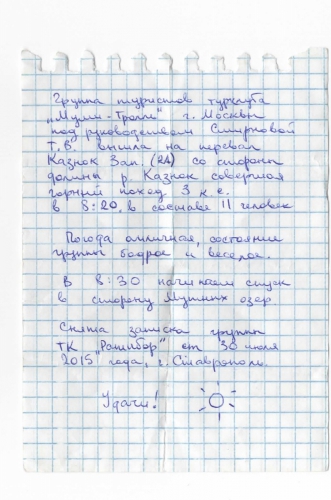 Группа туристов турклуба
„Муми-Тролль" г. Москвы
под руководством Смирновой
Т.В. вышла на перевал
Казнок Зап. (2А) со стороны
долины р. Казнок совершая
горный поход 3 к.с.
в 8:20, в составе 11 человек
Погода отличная, состояние
группы бодрое и веселое.
В 8:30 начинаем спуск
в сторону Мутных озер
Снята записка группы
ТК "Ромибор" от 30 июля
2015 года, г. Ставрополь.
Удачи!